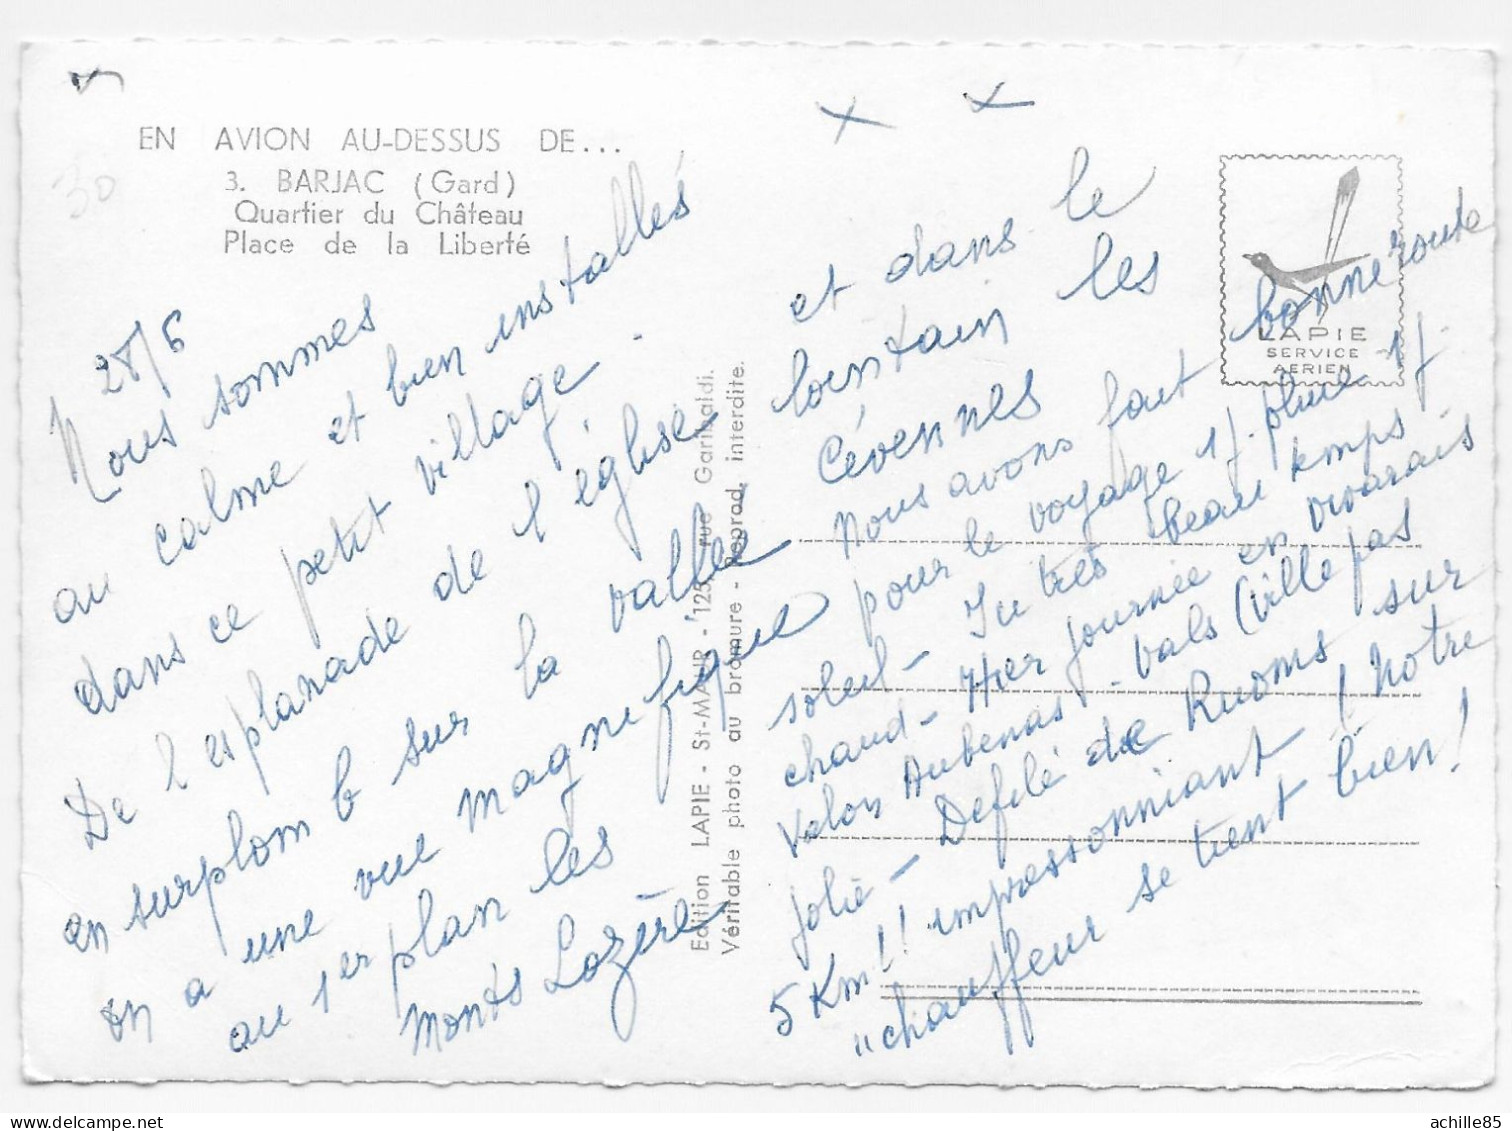 EN AVION AU-DESSUS DE...
3. BARJAC (Gard)
Quartier du Château
Place de la Liberté
30
28/6
Nous sommes
au calme et bien installés
dans ce petit village.
De l'esplanade de l'église
en surplomb sur la vallée
on a une vue magnifique
au 1er plan les
Monts Lozère
Edition LAPIE - St-MAUR - 125, rue Garibaldi.
Véritable photo au bromure - Reprod. interdite.
LAPIE
SERVICE
AERIEN
et dans le
lointain les
Cévennes
Nous avons fait bonne route
pour le voyage 1j. pluie 1j.
soleil - Ici très beau temps
chaud - Hier journée en vivarais
Valon Aubenas - Vals (ville pas
jolie - Défilé de Ruoms sur
5 Km!! impressionnant! Notre
"chauffeur se tient bien!
achille85